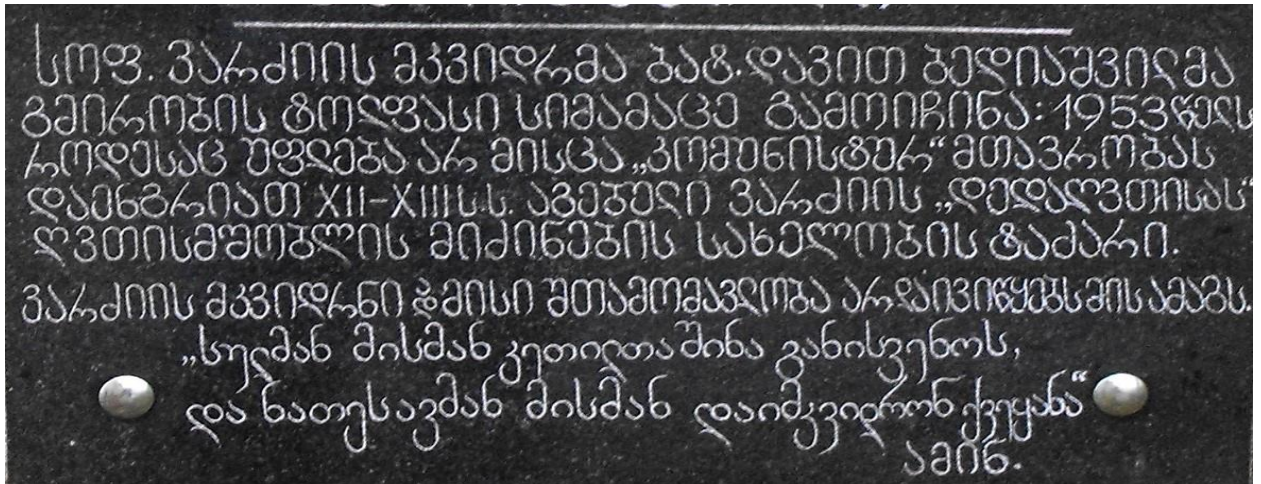 სოფ. ვარძიის მკვიდრმა ბატ. დავით ბედიაშვილმა
გმირობის ტოლფასი სიმამაცე გამოიჩინა: 1953 წელს
როდესაც უფლება არ მისცა „კომუნისტურ“ მთავრობას
დაენგრიათ XII-XIII ს.ს. აგებული ვარძიის „დედაღვთისას“
ღვთისმშობლის მიძინების სახელობის ტაძარი.
ვარძიის მკვიდრნი და მისი შთამომავლობა არ დაივიწყებს მის ამაგს.
„სულმან მისმან კეთილთა შინა განისვენოს,
და ნათესავმან მისმან დაიმკვიდრონ ქვეყანა“
ამინ.